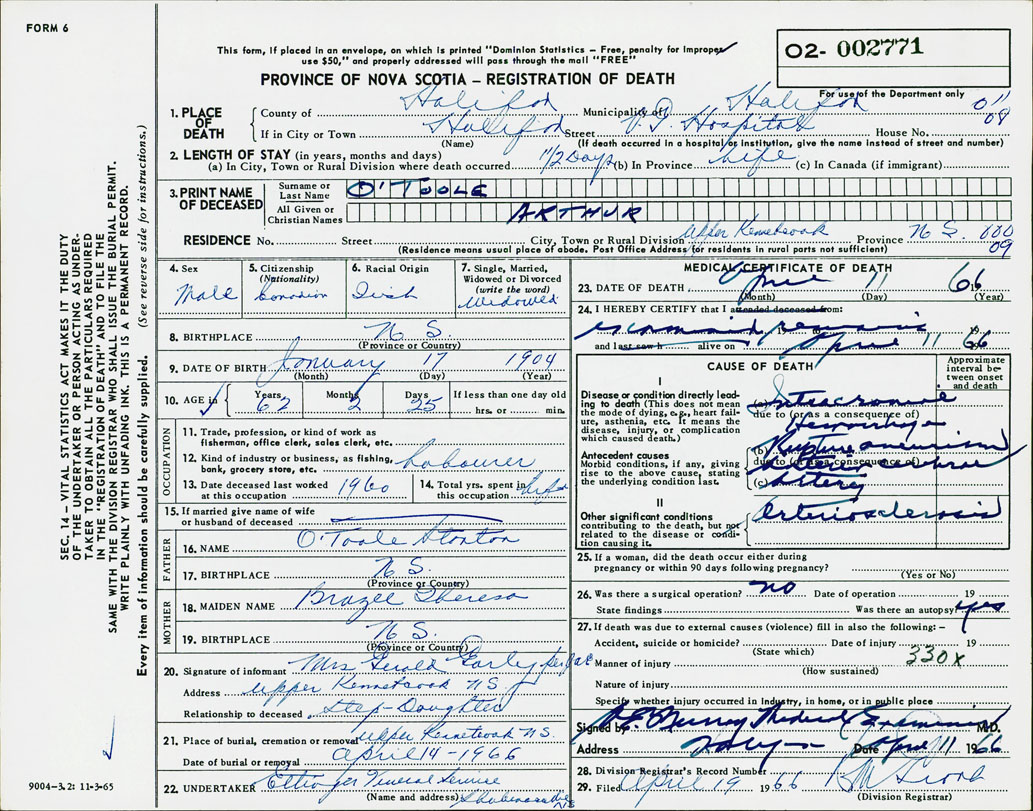 FORM 6
This form, if placed in an envelope, on which is printed "Dominion Statistics – Free, penalty for improper
use $50," and properly addressed will pass through the mail "FREE"
PROVINCE OF NOVA SCOTIA – REGISTRATION OF DEATH
02- 002771
For use of the Department only
011
08
1. PLACE OF DEATH
County of Halifax Municipality of Halifax
If in City or Town Halifax Street V.G. Hospital House No.
(Name) (If death occurred in a hospital or institution, give the name instead of street and number)
2. LENGTH OF STAY (in years, months and days)
(a) In City, Town or Rural Division where death occurred 1 1/2 Days (b) In Province Life (c) In Canada (if immigrant)
3. PRINT NAME OF DECEASED
Surname or Last Name O'TOOLE
All Given or Christian Names ARTHUR
RESIDENCE No. Street City, Town or Rural Division Upper Kennetcook Province N S. 000
09
(Residence means usual place of abode. Post Office Address for residents in rural parts not sufficient)
4. Sex
Male
5. Citizenship (Nationality)
Canadian
6. Racial Origin
Irish
7. Single, Married, Widowed or Divorced (write the word)
Widowed
8. BIRTHPLACE N S.
(Province or Country)
9. DATE OF BIRTH January 17 1904
(Month) (Day) (Year)
10. AGE in Years 62 Months 2 Days 25 If less than one day old
hrs. or min.
OCCUPATION
11. Trade, profession, or kind of work as fisherman, office clerk, sales clerk, etc.
12. Kind of industry or business, as fishing, bank, grocery store, etc. Labourer
13. Date deceased last worked at this occupation 1960
14. Total yrs. spent in this occupation Life
15. If married give name of wife or husband of deceased
FATHER
16. NAME O'Toole Stanton
17. BIRTHPLACE N S.
(Province or Country)
MOTHER
18. MAIDEN NAME Brazee Theresa
19. BIRTHPLACE N S.
(Province or Country)
20. Signature of informant Mrs Gerald Early per
Address Upper Kennetcook N S
Relationship to deceased Step-Daughter
21. Place of burial, cremation or removal Upper Kennetcook N S.
Date of burial or removal April 14 - 1966
22. UNDERTAKER Ettinger Funeral Service
(Name and address) Shubenacadie NS
MEDICAL CERTIFICATE OF DEATH
23. DATE OF DEATH April 11 1966
(Month) (Day) (Year)
24. I HEREBY CERTIFY that I attended deceased from:
examined remains 19
and last saw h alive on April 11 1966
CAUSE OF DEATH
Approximate interval between onset and death
I
Disease or condition directly leading to death (This does not mean the mode of dying, e.g., heart failure, asthenia, etc. It means the disease, injury, or complication which caused death.)
(a) Intracranial
due to (or as a consequence of)
Hemorrhage
Antecedent causes
Morbid conditions, if any, giving rise to the above cause, stating the underlying condition last.
(b) Rupture aneurism
due to (or as a consequence of)
(c) Artery
II
Other significant conditions contributing to the death, but not related to the disease or condition causing it.
Arteriosclerosis
25. If a woman, did the death occur either during pregnancy or within 90 days following pregnancy?
(Yes or No)
26. Was there a surgical operation? no Date of operation 19
State findings Was there an autopsy? yes
27. If death was due to external causes (violence) fill in also the following: –
Accident, suicide or homicide? Date of injury 19
(State which)
330X
Manner of injury
(How sustained)
Nature of injury
Specify whether injury occurred in Industry, in home, or in public place
Signed by Murray Medical Examiner M.D.
Address Date April 11 1966
28. Division Registrar's Record Number
29. Filed April 19 1966
(Division Registrar)
SEC. 14 – VITAL STATISTICS ACT MAKES IT THE DUTY
OF THE UNDERTAKER OR PERSON ACTING AS UNDER-
TAKER TO OBTAIN ALL THE PARTICULARS REQUIRED
IN THE "REGISTRATION OF DEATH" AND TO FILE THE
SAME WITH THE DIVISION REGISTRAR WHO SHALL ISSUE THE BURIAL PERMIT.
WRITE PLAINLY WITH UNFADING INK. THIS IS A PERMANENT RECORD.
Every item of information should be carefully supplied. (See reverse side for instructions.)
9004-3.2: 11-3-65